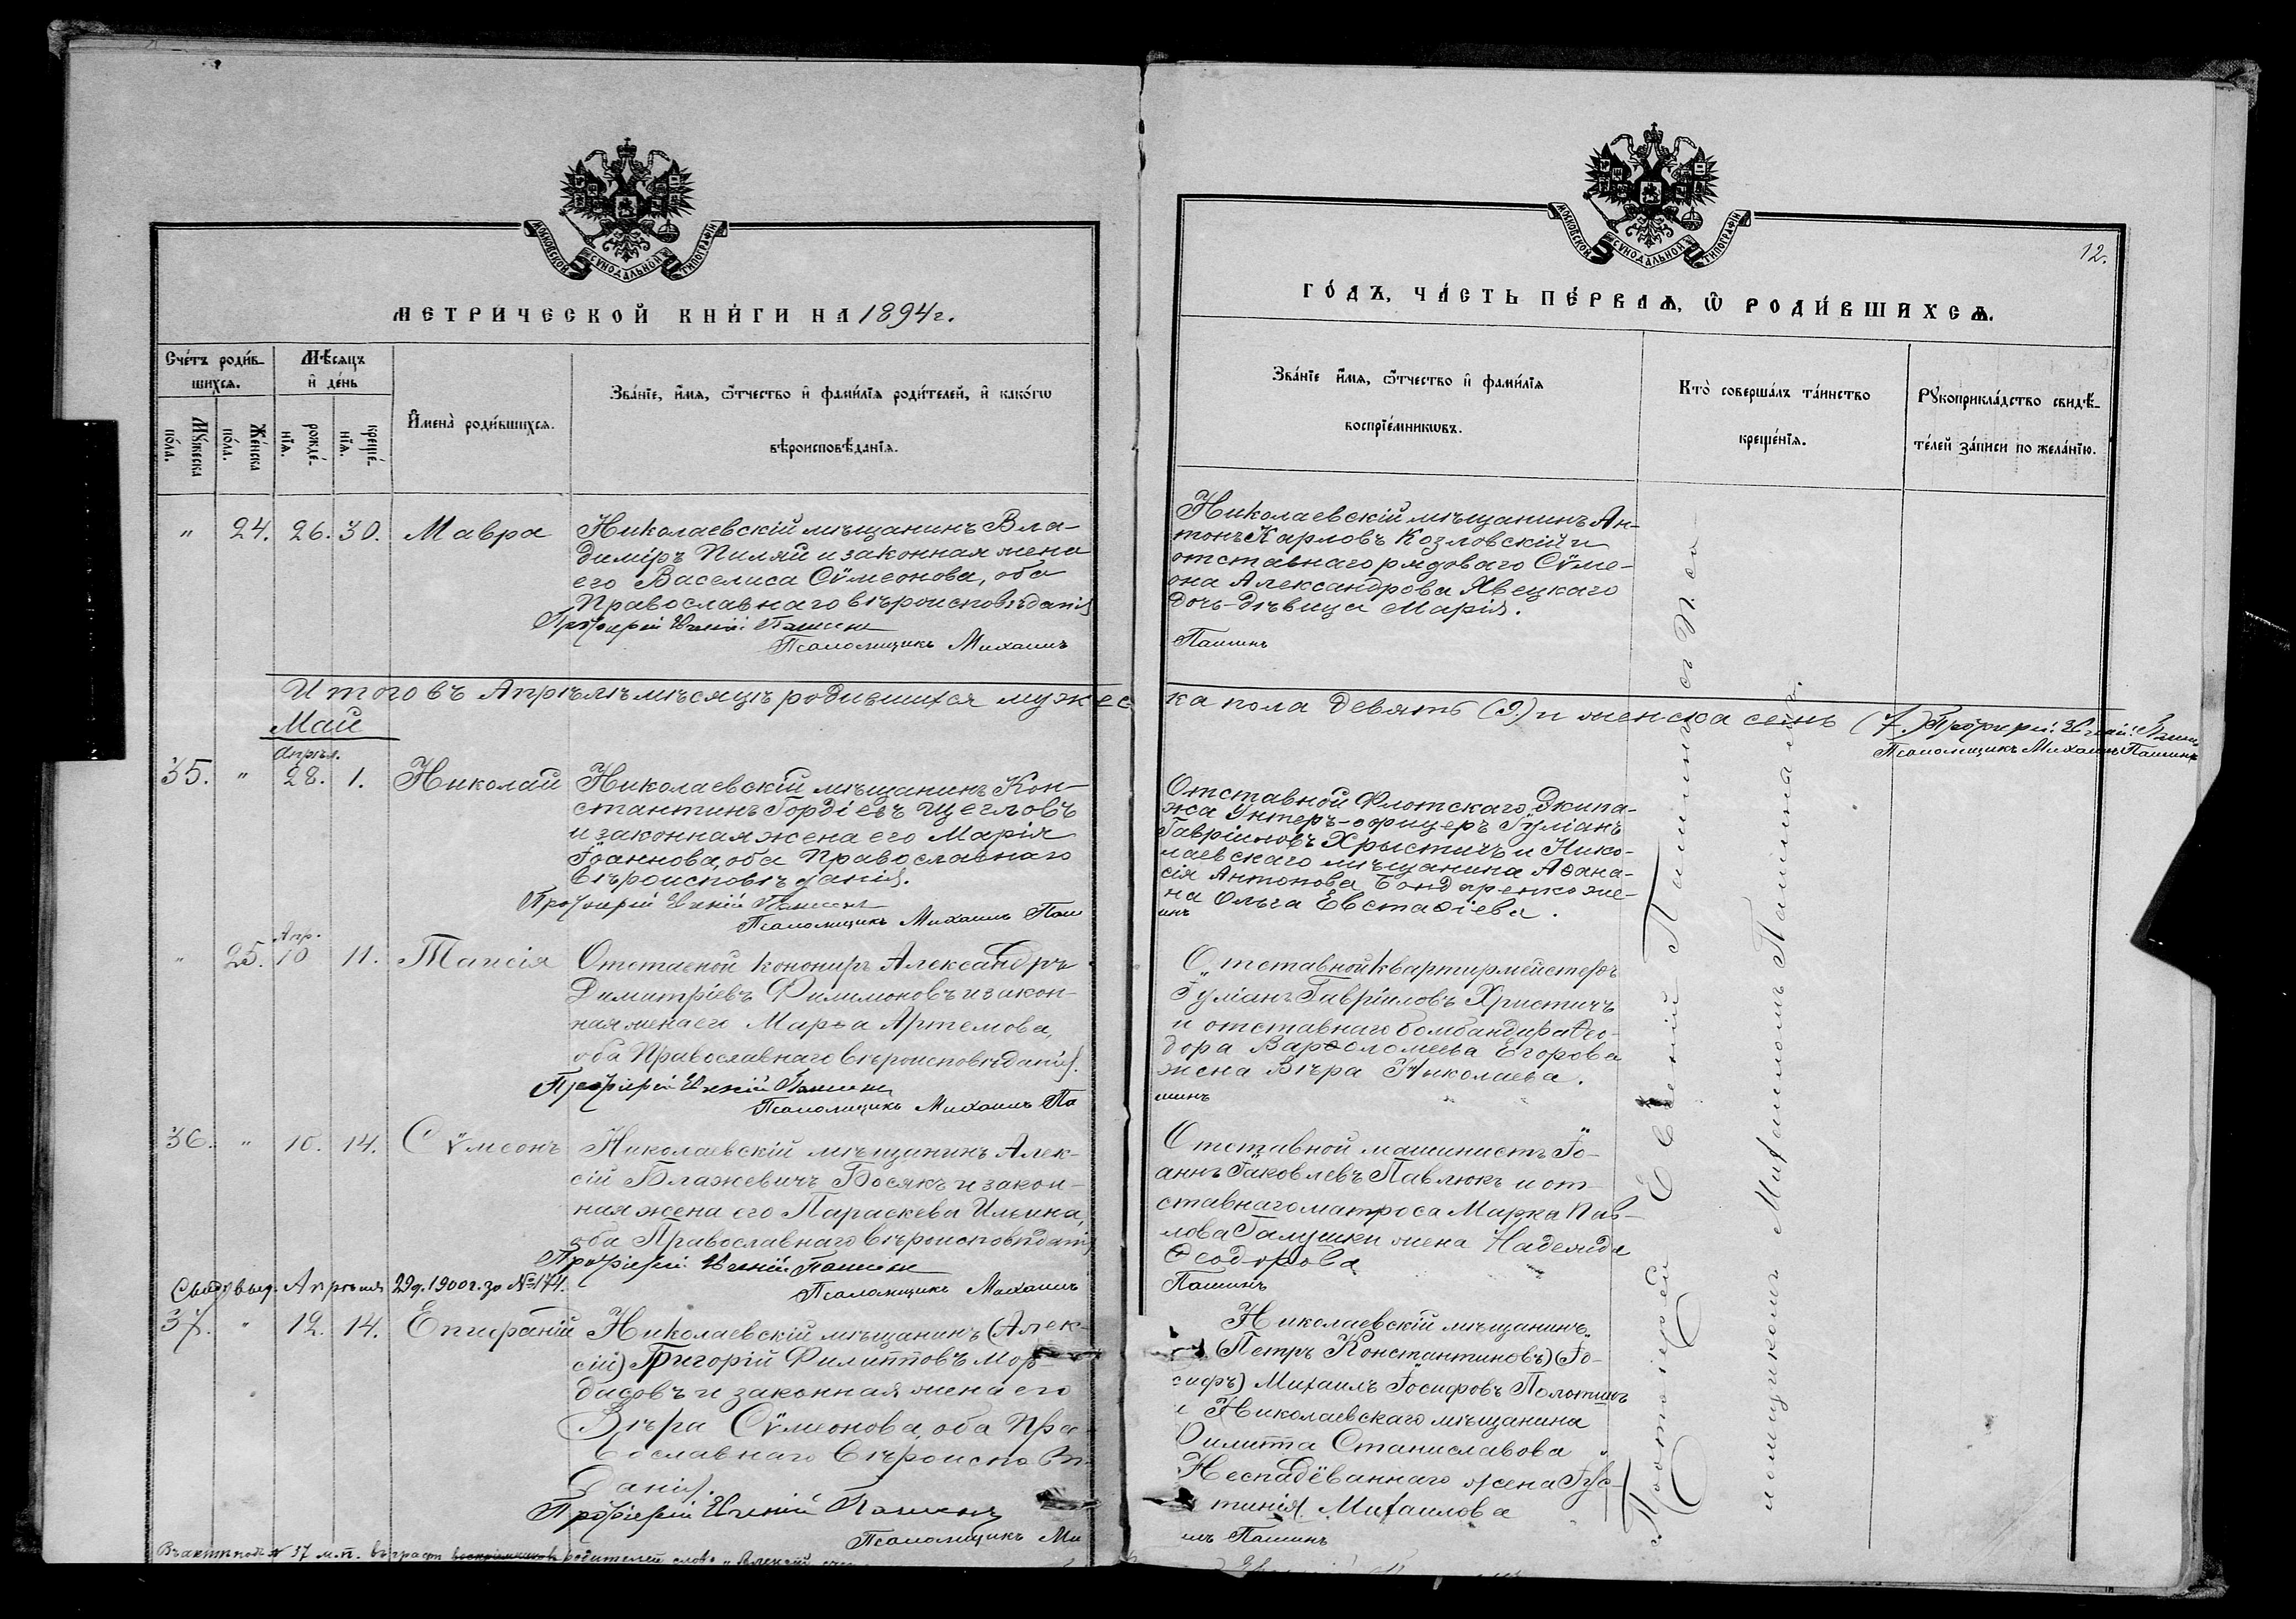 МОСКОВСКОЙ СѴНОДАЛЬНОЙ ТИПОГРАФІИ
МЕТРИ́ЧЕСКОЙ КНИ́ГИ НА 1894 г.
Сче́тъ роди́в-
шихсѧ.
Мѣ́сѧцъ
и҆ де́нь
Мꙋ́жеска
по́ла.
Же́нска
по́ла.
рожде́-
нїѧ.
креще́-
нїѧ.
И҆мена̀ роди́вшихсѧ.
Зва́нїе, и҆́мѧ, ѻ҆́тчество и҆ фами́лїѧ роди́телей, и҆ како́гѡ
вѣроисповѣ́данїѧ.
" 24. 26. 30. Мавра
Николаевскій мѣщанинъ Вла-
димiръ Пиляй и законная жена
его Васелиса Сѵмеонова, оба
Православнаго вѣроисповѣданія
Протоіерей Евгеній Пашинъ
Псаломщикъ Михаилъ
Итого въ Апрѣлѣ мѣсяцѣ родившихся мужес
Май
Апрѣл.
35. " 28. 1. Николай
Николаевскій мѣщанинъ Кон-
стантинъ Гордіевъ Щегловъ
и законная жена его Марія
Іоаннова, оба Православнаго
вѣроисповѣданія.
Протоіерей Евгеній Пашинъ
Псаломщикъ Михаилъ Паш
Апр.
" 25. 10 11. Таисія
Отставной конониръ Александръ
Димитріевъ Филимоновъ и закон-
ная жена его Марѳа Артемова,
оба Православнаго вѣроисповѣданія.
Протоіерей Евгеній Пашинъ
Псаломщикъ Михаилъ Па
36. " 10. 14. Сѵмеонъ
Николаевскій мѣщанинъ Алек-
сій Блажевичъ Босякъ и закон-
ная жена его Параскева Ильина,
оба Православнаго вѣроисповѣданія
Протоіерей Евгеній Пашинъ
Псаломщикъ Михаилъ
Свид. выд. Апрѣля 29 д. 1900 г. за № 174.
37. " 12. 14. Епифаній
Николаевскій мѣщанинъ (Алек-
сій) Григорій Филипповъ Мор-
дасовъ и законная жена его
Вѣра Сѵмеонова, оба Пра-
вославнаго вѣроисповѣ-
данія.
Протоіерей Евгеній Пашинъ
Псаломщикъ Ми
Въ актѣ подъ № 37 м. п. въ графѣ воспріемниковъ родителей слово "Алексій
МОСКОВСКОЙ СѴНОДАЛЬНОЙ ТИПОГРАФІИ
12.
ГО́ДЪ, ЧА́СТЬ ПЕ́РВАѦ, Ѽ РОДИ́ВШИХСѦ.
Зва́нїе и҆́мѧ, ѻ҆́тчество и҆ фами́лїѧ
воспрїе́мникѡвъ.
Кто̀ соверша́лъ та́инство
креще́нїѧ.
Рꙋкоприкла́дство свидѣ́-
телей за́писи по жела́нїю.
Николаевскій мѣщанинъ Ан-
тонъ Карловъ Козловскій и
отставнаго рядоваго Сѵме-
она Александрова Явецкаго
дочь-дѣвица Марія.
Пашинъ
ка пола девять (9) и женска семь (7.) Протоіерей Евгеній Пашинъ
Псаломщикъ Михаилъ Пашинъ
Отставной Флотскаго Экипа-
жа Унтеръ-офицеръ Іуліанъ
Гавріиловъ Хрыстичъ и Нико-
лаевскаго мѣщанина Аѳана-
сія Антонова Бондаренко же-
на Ольга Евстаѳіева.
инъ
Отставной квартирмейстеръ
Іуліанъ Гавріиловъ Христичъ
и отставнаго бомбандира Ѳео-
дора Варѳоломеева Егорова
жена Вѣра Николаева.
шинъ
Отставной машинистъ Іо-
аннъ Іаковлевъ Павлюкъ и от-
ставнаго матроса Марка Пав-
лова Галушки жена Надежда
Ѳеодорова
Пашинъ
Николаевскій мѣщанинъ
(Петръ Константиновъ) (Іо-
сифъ) Михаилъ Іосифовъ Полотинъ
и Николаевскаго мѣщанина
Филиппа Станиславова
Неспадёваннаго жена Іус-
тинія Михаилова
илъ Пашинъ
Протоіерей Евгеній Пашинъ съ Пса-
ломщикомъ Михаиломъ Пашинымъ.